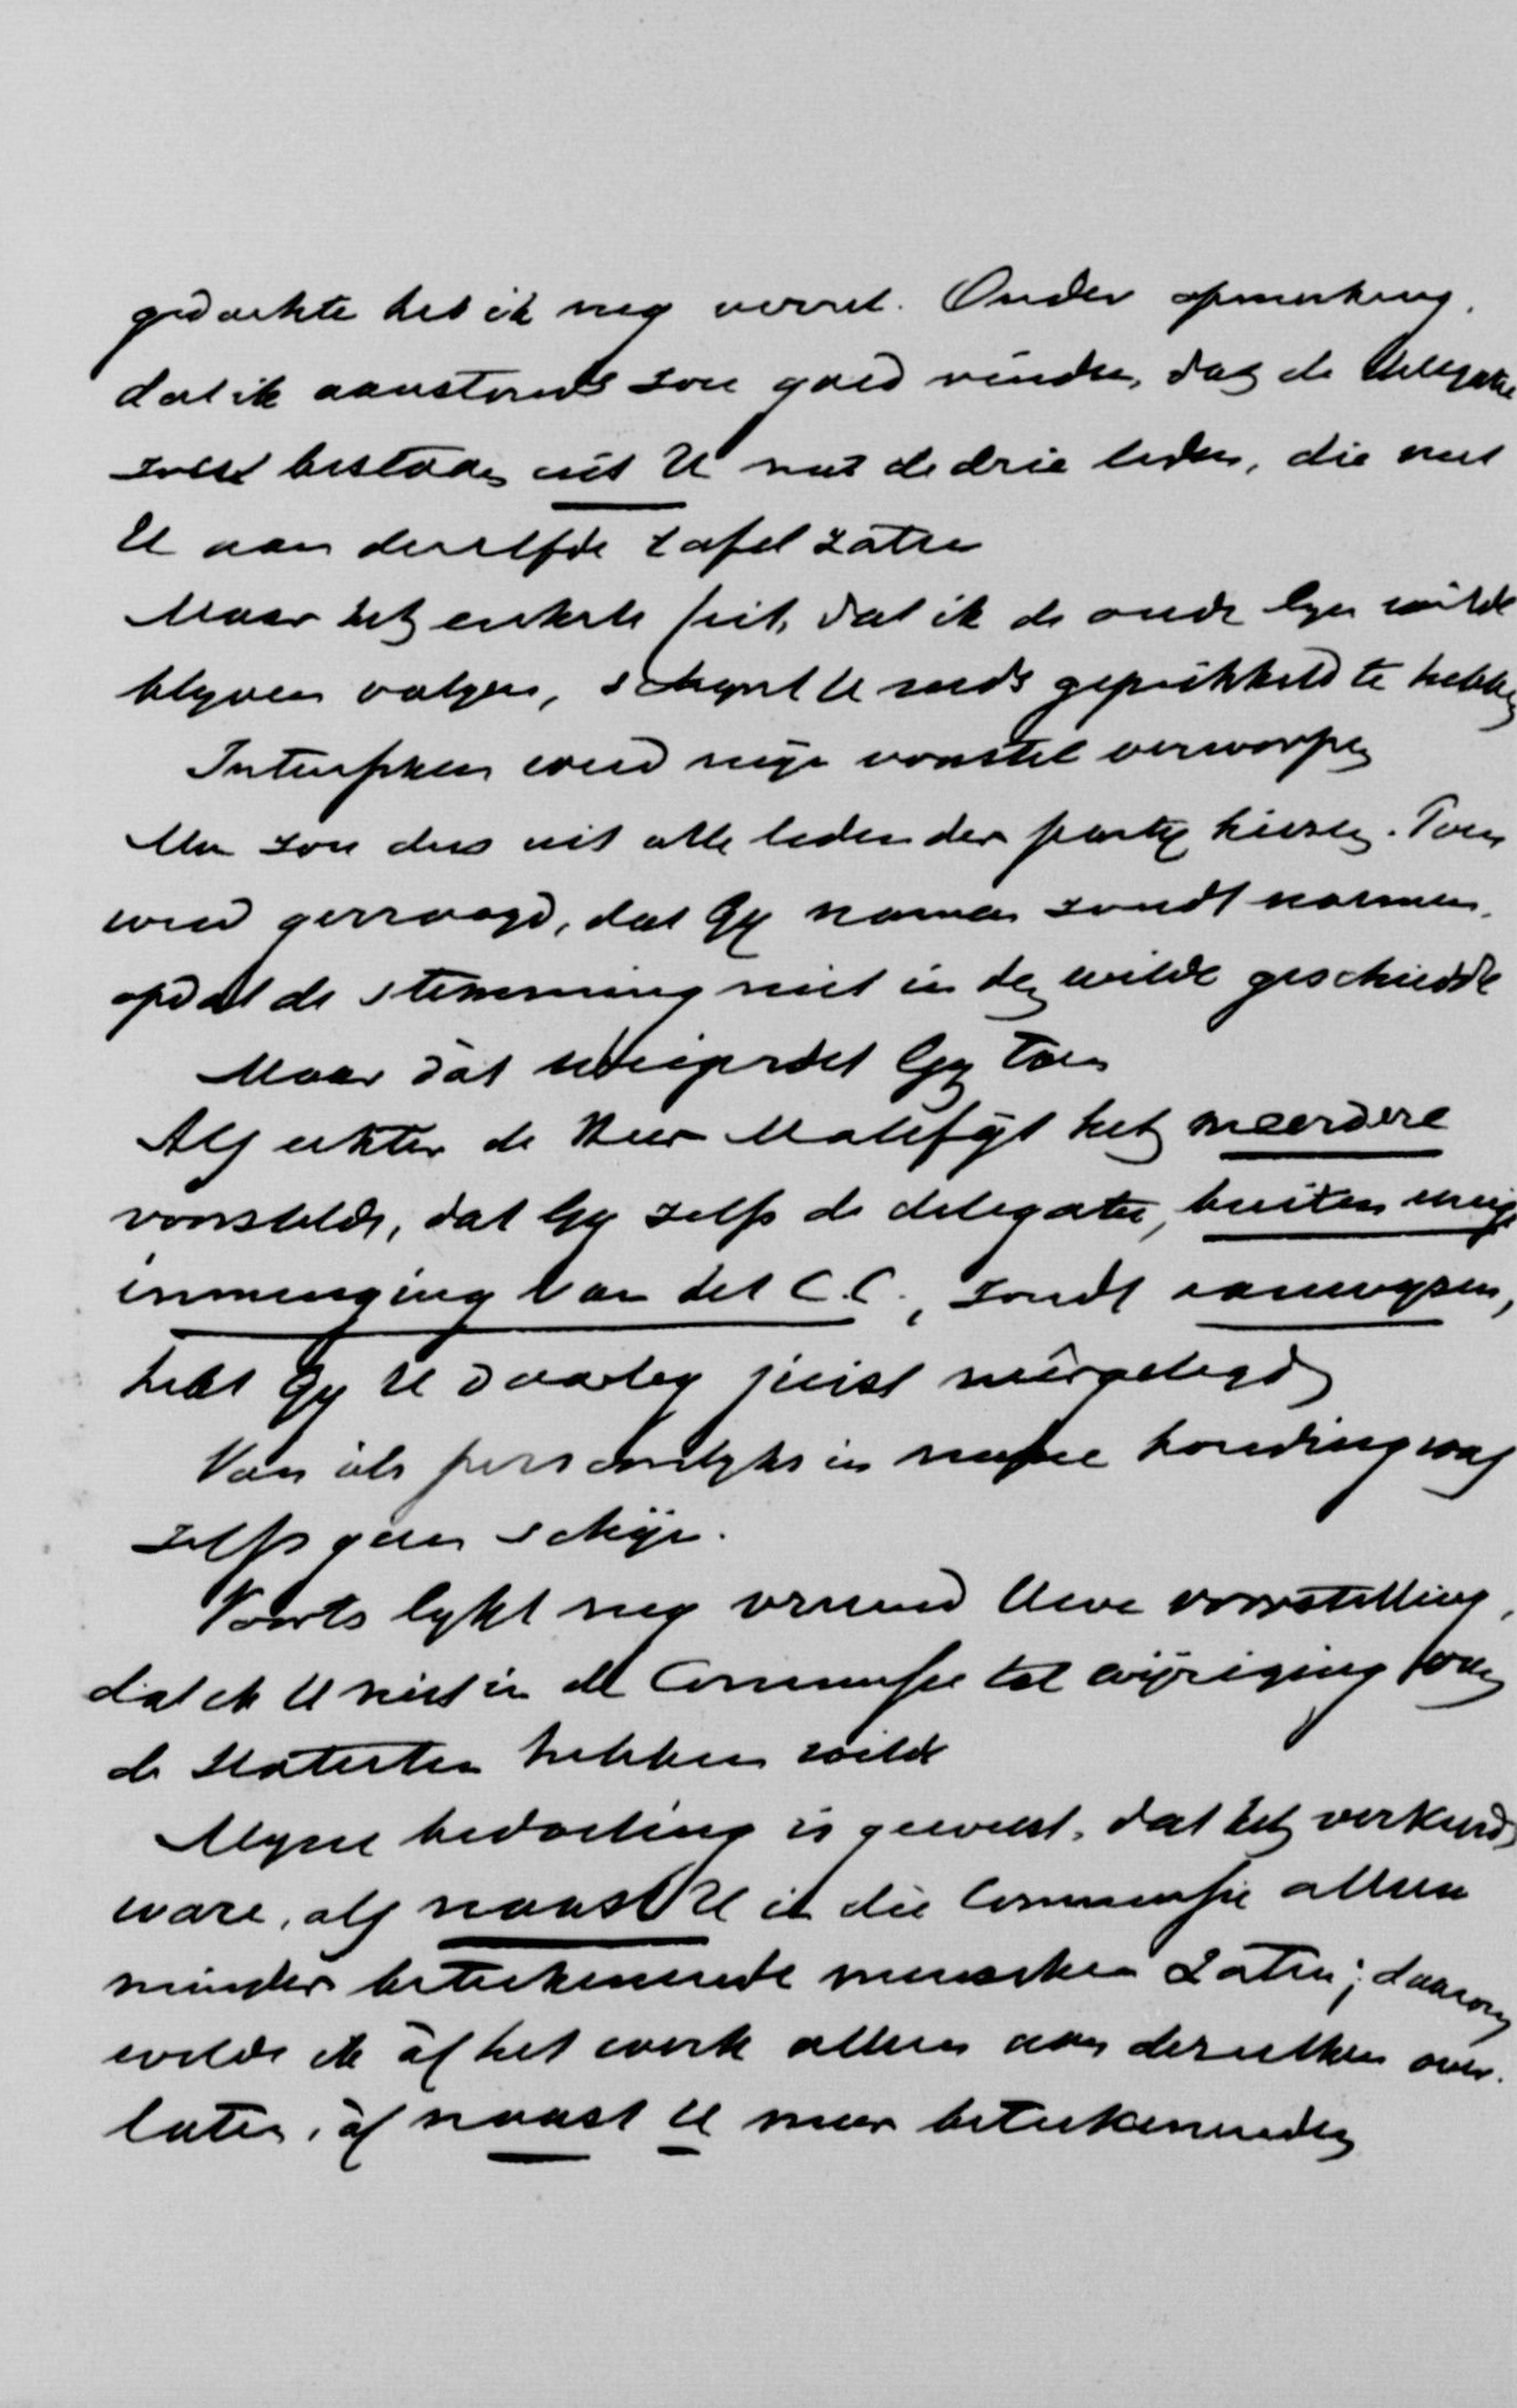 gedachte heb ik mij verzet. Onder opmerking,
dat ik aanstonds zou goed vinden, dat de delegatie
zoude bestaan uit U met de drie leden, die met
U aan dezelfde tafel zaten
Maar het enkele feit, dat ik de oude lijn wilde
blijven volgen, schijnt U reeds geprikkeld te hebben
Intusschen werd mijn voorstel verworpen
Men zou dus uit alle leden der partij kiezen. Toen
werd gevraagd, dat Gij namen zoudt noemen,
opdat de stemming niet in den wilde geschiedde
Maar dat weigerdet Gij toen
Als echter de Heer Malefijt het meerdere
voorstelde, dat Gij zelfs de delegatie, buiten enige
inmenging van het C.C., zoudt aanwijzen,
hebt Gij U daarbij juist neergelegd
Van iets persoonlijks in mijne houding was
zelfs geen schijn.
Voorts lijkt mij vreemd Uwe voorstelling,
dat ik U niet in de Commissie tot wijziging van
de Statuten hebben wilde
Mijne bedoeling is geweest, dat het verkeerd
ware, als naast U in die Commissie alleen
minder beteekenende menschen zaten; daarom
wilde ik òf het werk alleen aan dezulken over-
laten, òf naast U meer beteekenenden